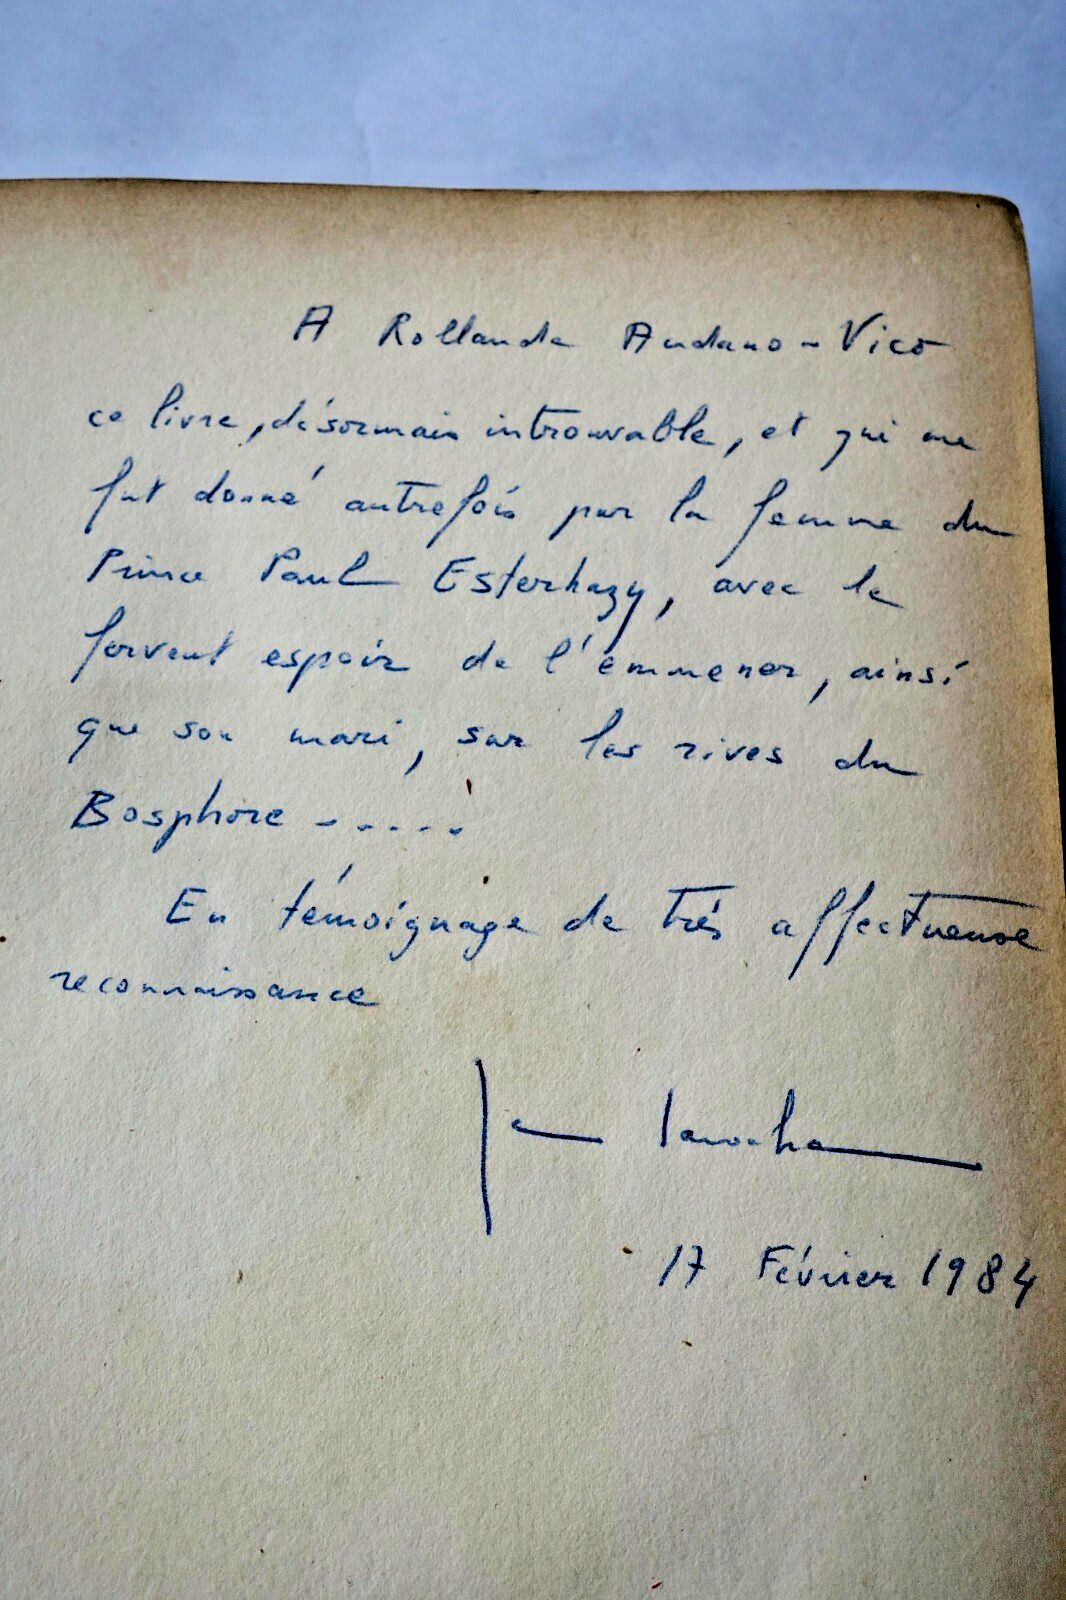 A Rollande Audano-Vico
ce livre, désormais introuvable, et qui me
fut donné autrefois par la femme du
Prince Paul Esterhazy, avec le
fervent espoir de l'emmener, ainsi
que son mari, sur les rives du
Bosphore -....
En témoignage de très affectueuse
reconnaissance
17 Février 1984